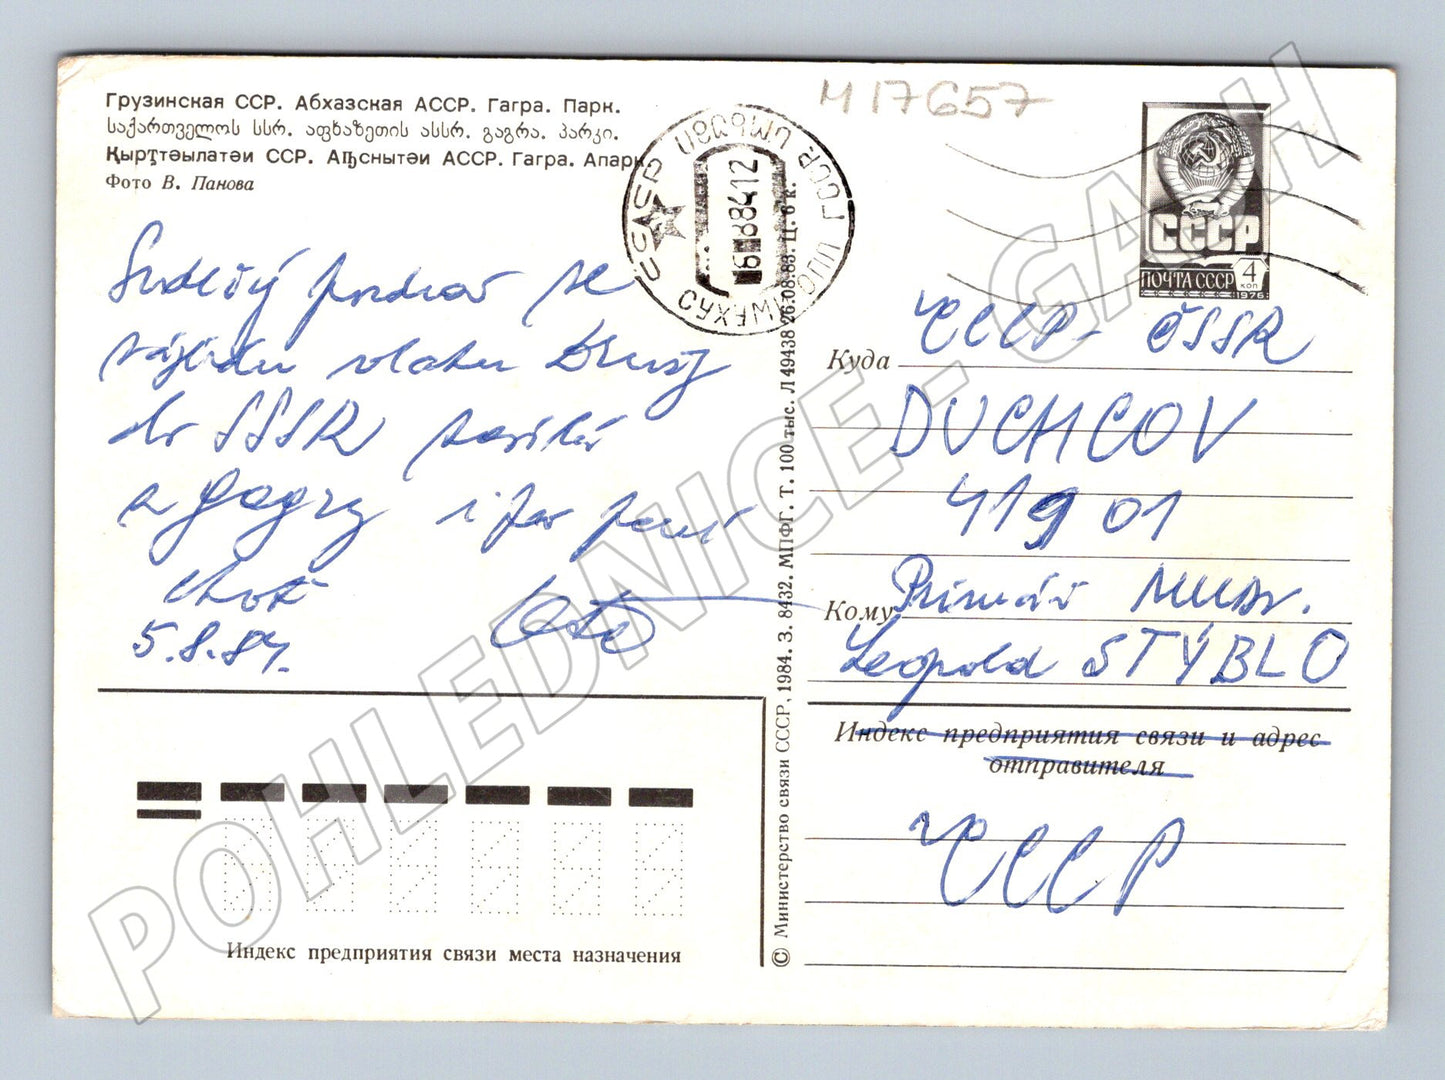 Грузинская ССР. Абхазская АССР. Гагра. Парк.
საქართველოს სსრ. აფხაზეთის ასსრ. გაგრა. პარკი.
Қырҭтәылатәи ССР. Аҧснытәи АССР. Гагра. Апарк
Фото В. Панова
M 17657
СССР
ПОЧТА СССР 4 коп
1976
Srdečný pozdrav ze
zájezdu vlaku Družby
do SSSR zasílá
a Gagry i
5.8.84.
Куда ЧССР- ČSSR
DUCHCOV
419 01
Кому Primář MUDr.
Leopold STÝBLO
Индекс предприятия связи и адрес
отправителя
ЧССР
Индекс предприятия связи места назначения
© Министерство связи СССР, 1984. З. 8432. МПФГ. Т. 100 тыс. Л 49438 26.08.83. Ц. 6 к.
POHLEDNICE - GASH